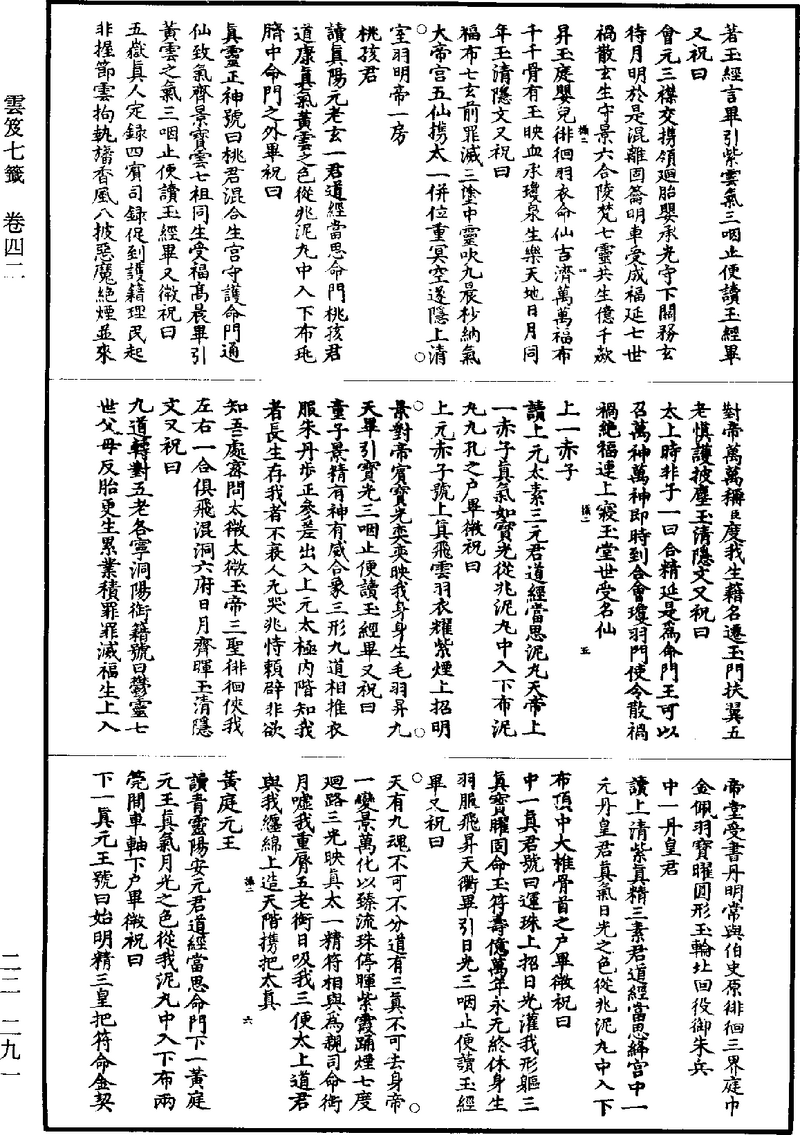 雲笈七籤　卷四二
二二—二九一
若玉經言畢引紫雲氣三咽止便讀玉經畢
又祝曰
會元三襟交携領迴胎嬰承光守下關務玄
待月明於是混離固崙明車受成福延七世
禍散玄生守景六合陵梵七靈共生億千欻
昇玉庭嬰兒徘徊羽衣命仙古濟萬萬福布
千千骨有玉映血承瓊泉生樂天地日月同
年玉清隱文又祝曰
福布七玄前罪滅三塗中靈吹九晨杪納氣
大帝宮五仙携太一併位重冥空遂隱上清
室羽明帝一房
桃孩君
讀真陽元老玄一君道經當思命門桃孩君
道康真氣黃雲之色從兆泥丸中入下布兆
臍中命門之外畢祝曰
真靈正神號曰桃君混合生宮守護命門通
仙致氣齊景寶雲七祖同生受福高晨畢引
黃雲之氣三咽止便讀玉經畢又微祝曰
五嶽真人定錄四賓司錄促到護籍理民起
非握節雲拘執旛香風八披惡魔絶煙並來
對帝萬萬稱臣度我生籍名遷玉門扶翼五
老慎護披塵玉清隱文又祝曰
太上時非子一曰合精延是為命門王可以
召萬神萬神即時到合會瓊羽門使令散禍
禍絶福連上寢玉堂世受名仙
上一赤子
讀上元太素三元君道經當思泥丸天帝上
一赤子真氣如寶光從兆泥丸中入下布泥
九九孔之户畢微祝曰
上元赤子號上真飛雲羽衣耀紫煙上招明
景對帝賓寶光奕奕映我身身生毛羽昇九
天畢引寶光三咽止便讀玉經畢又祝曰
童子景精有神有威合象三形九道相推衣
服朱丹步正參差出入上元太極內階知我
者長生存我者不衰人无哭兆恃賴辟非欲
知吾處寮問太微太微玉帝三聖徘徊俠我
左右一合俱飛混洞六府日月齊暉玉清隱
文又祝曰
九道轉對五老各寧洞陽衒籍號曰鬱靈七
世父母反胎更生累業積罪罪滅福生上入
帝堂受書丹明常與伯史原徘徊三界庭巾
金佩羽寶曜圓形玉輪址回役御朱兵
中一丹皇君
讀上清紫真精三素君道經當思絳宮中一
元丹皇君真氣日光之色從兆泥丸中入下
布頂中大椎骨首之户畢微祝曰
中一真君號曰運珠上招日光灌我形軀三
真寶曜固命玉符壽億萬年永元終休身生
羽服飛昇天衢畢引日光三咽止便讀玉經
畢又祝曰
天有九魂不可不分道有三真不可去身帝
一變景萬化以臻流珠停暉紫霞踊煙七度
迴路三光映真太一精符相與為親司命銜
月噓我重脣五老銜日吸我三便太上道君
與我纏綿上造天階携把太真
黃庭元王
讀青靈陽安元君道經當思命門下一黃庭
元王真氣月光之色從我泥丸中入下布兩
莞間車軸下户畢微祝曰
下一真元王號曰始明精三皇把符命金契